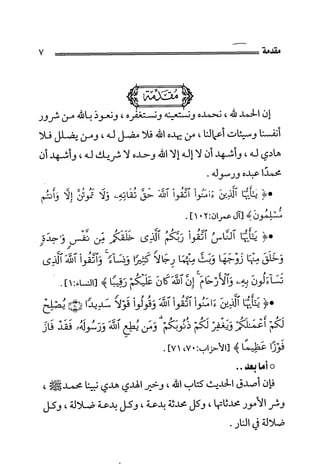 مقدمة
٧
مُقَدِّمَةٌ
إن الحمد لله ، نحمده ونستعينه ونستغفره ، ونعوذ بالله من شرور
أنفسنا وسيئات أعمالنا ، من يهده الله فلا مضل له ، ومن يضلل فلا
هادي له ، وأشهد أن لا إله إلا الله وحده لا شريك له ، وأشهد أن
محمدًا عبده ورسوله .
• ﴿ يَٰٓأَيُّهَا ٱلَّذِينَ ءَامَنُوا۟ ٱتَّقُوا۟ ٱللَّهَ حَقَّ تُقَاتِهِۦ وَلَا تَمُوتُنَّ إِلَّا وَأَنتُم
مُّسْلِمُونَ ﴾ [آل عمران:١٠٢] .
• ﴿ يَٰٓأَيُّهَا ٱلنَّاسُ ٱتَّقُوا۟ رَبَّكُمُ ٱلَّذِى خَلَقَكُم مِّن نَّفْسٍ وَٰحِدَةٍ
وَخَلَقَ مِنْهَا زَوْجَهَا وَبَثَّ مِنْهُمَا رِجَالًا كَثِيرًا وَنِسَآءً ۚ وَٱتَّقُوا۟ ٱللَّهَ ٱلَّذِى
تَسَآءَلُونَ بِهِۦ وَٱلْأَرْحَامَ ۚ إِنَّ ٱللَّهَ كَانَ عَلَيْكُمْ رَقِيبًا ﴾ [النساء:١] .
• ﴿ يَٰٓأَيُّهَا ٱلَّذِينَ ءَامَنُوا۟ ٱتَّقُوا۟ ٱللَّهَ وَقُولُوا۟ قَوْلًا سَدِيدًا ﴿٧٠﴾ يُصْلِحْ
لَكُمْ أَعْمَٰلَكُمْ وَيَغْفِرْ لَكُمْ ذُنُوبَكُمْ ۗ وَمَن يُطِعِ ٱللَّهَ وَرَسُولَهُۥ فَقَدْ فَازَ
فَوْزًا عَظِيمًا ﴾ [الأحزاب:٧٠، ٧١] .
• أما بعد ..
فإن أصدق الحديث كتاب الله ، وخير الهدي هدي نبينا محمد ﷺ ،
وشر الأمور محدثاتها ، وكل محدثة بدعة ، وكل بدعة ضلالة ، وكل
ضلالة في النار .